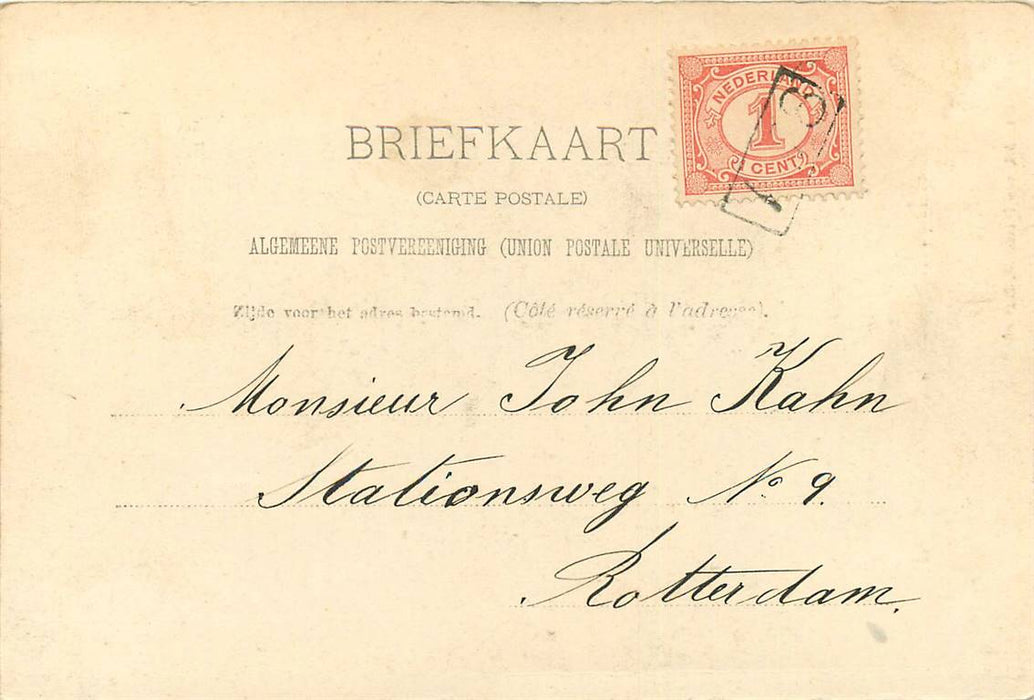 BRIEFKAART
(CARTE POSTALE)
ALGEMEENE POSTVEREENIGING (UNION POSTALE UNIVERSELLE)
Zijde voor het adres bestemd. (Côté réservé à l'adresse).
NEDERLAND
1
CENT
Monsieur John Kahn
Stationsweg No 9.
Rotterdam.